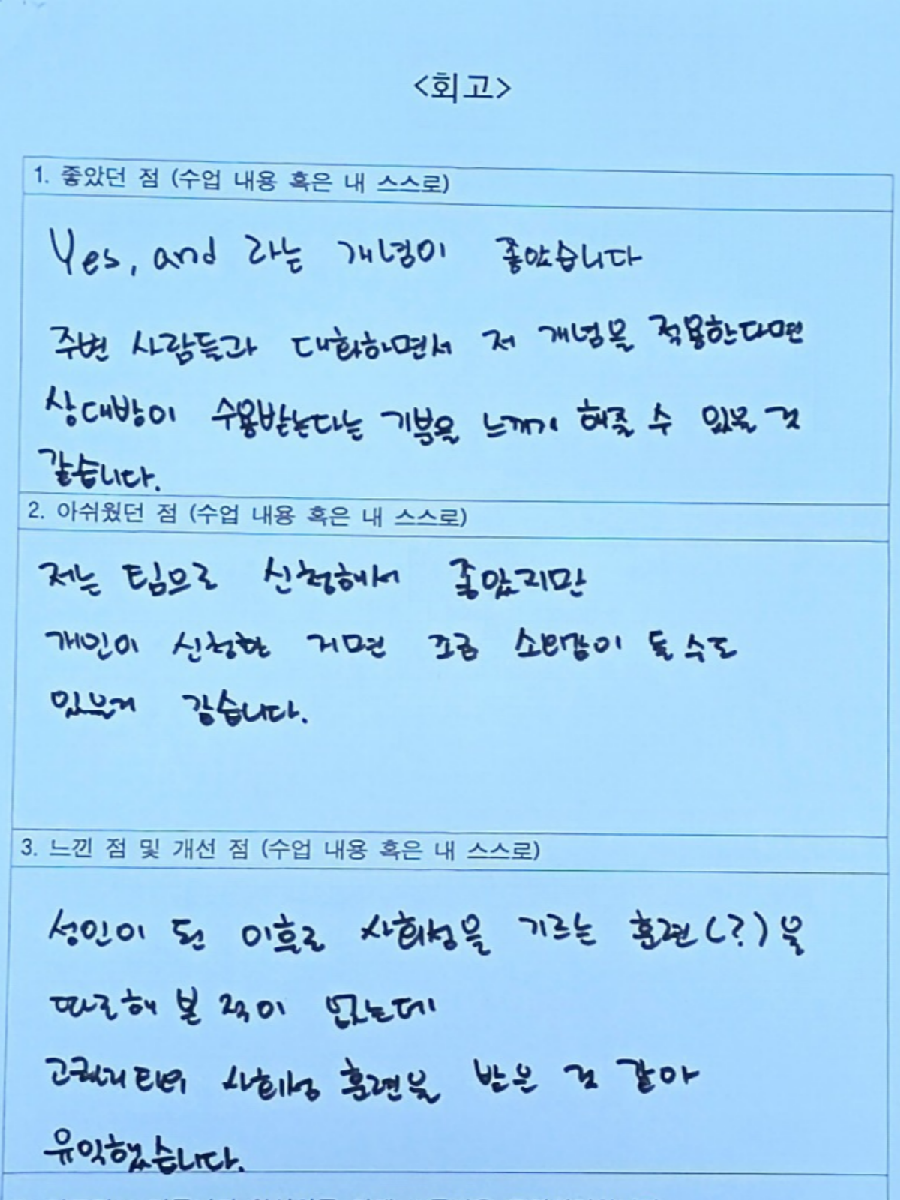 <회고>
1. 좋았던 점 (수업 내용 혹은 내 스스로)
Yes, and 라는 개념이 좋았습니다
주변 사람들과 대화하면서 저 개념을 적용한다면
상대방이 수용받는다는 기분을 느끼게 해줄 수 있을 것
같습니다.
2. 아쉬웠던 점 (수업 내용 혹은 내 스스로)
저는 팀으로 신청해서 좋았지만
개인이 신청한 거면 조금 소외감이 들 수도
있을거 같습니다.
3. 느낀 점 및 개선 점 (수업 내용 혹은 내 스스로)
성인이 된 이후로 사회성을 기르는 훈련(?)을
따로해 본 적이 없는데
고퀄리티의 사회성 훈련을 받은 것 같아
유익했습니다.